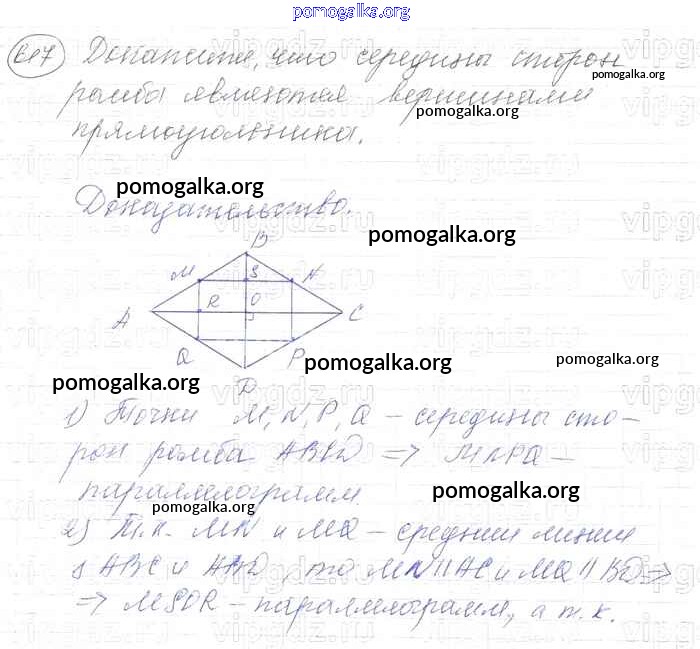 pomogalka.org
617 Докажите, что середины сторон
pomogalka.org
ромба являются вершинами
pomogalka.org
прямоугольника.
pomogalka.org
Доказательство.
pomogalka.org
B
M S N
A R O C
Q P
D
pomogalka.org
pomogalka.org
pomogalka.org
1) Точки M, N, P, Q – середины сто-
рон ромба ABCD => MNPQ –
параллелограмм.
pomogalka.org
2) Т.к. MN и MQ – средние линии
ABC и ABD, то MN || AC и MQ || BD =>
=> MSOR – параллелограмм, а т.к.